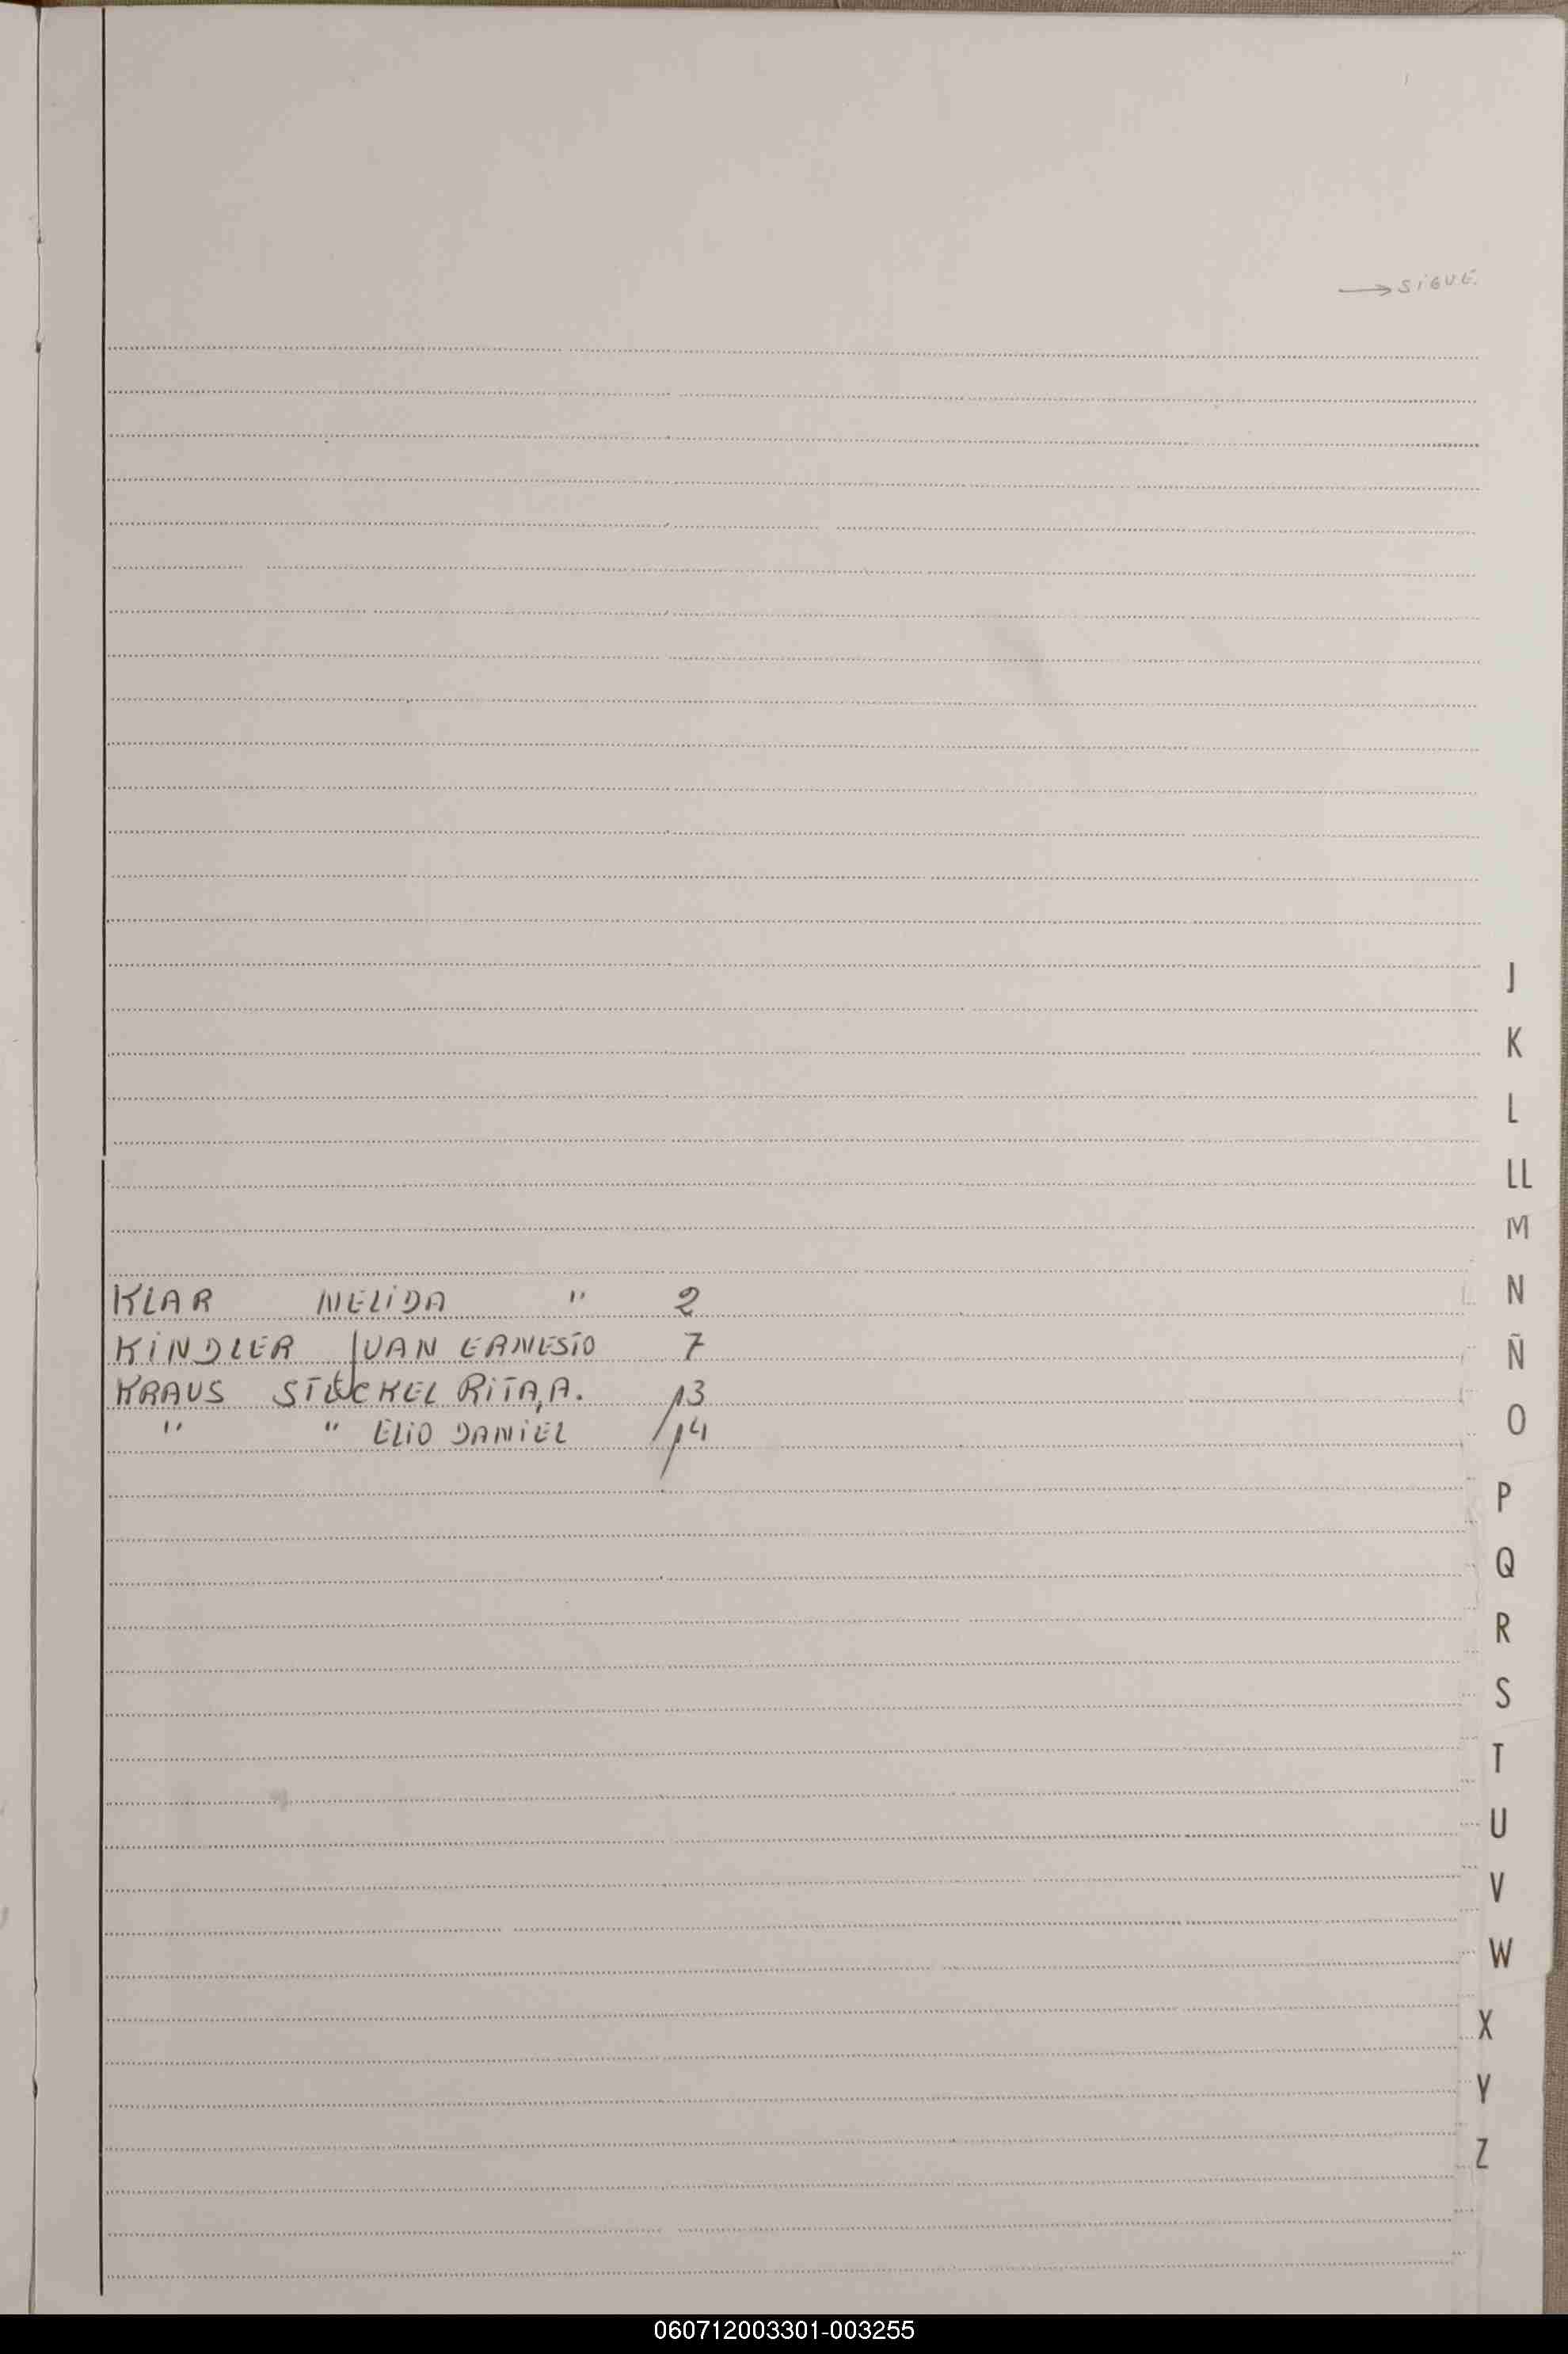 → SIGUE.
J
K
L
LL
M
N
KLAR NELIDA " 2
Ñ
KINDLER JUAN ERNESTO 7
KRAUS STUCKEL RITA, A. 13
O
" " ELIO DANIEL 14
P
Q
R
S
T
U
V
W
X
Y
Z
060712003301-003255